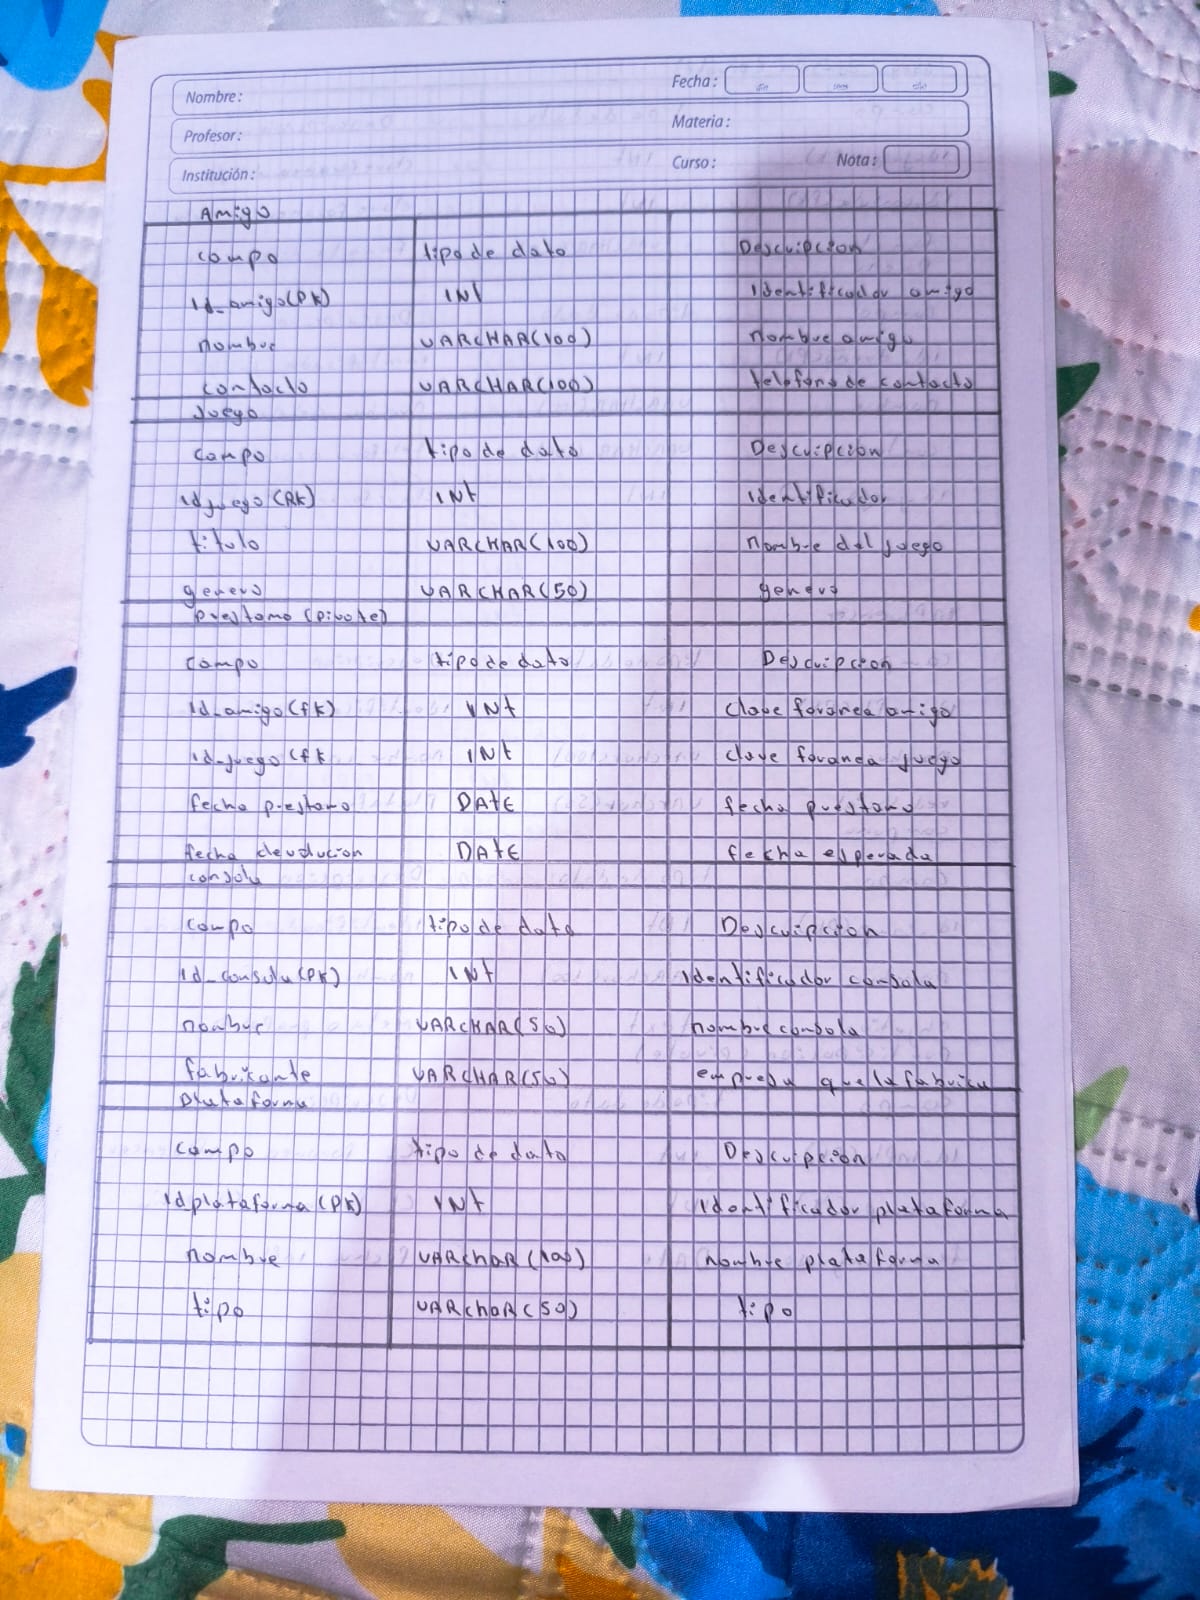 Nombre: Fecha: día mes año
Profesor: Materia:
Institución: Curso: Nota:
Amigo
campo tipo de dato Descripcion
Id_amigo(PK) INt Identificador amigo
nombre VARCHAR(100) nombre amigo
contacto VARCHAR(100) telefono de contacto
Juego
campo tipo de dato Descripcion
Id_juego(PK) INt Identificador
titulo VARCHAR(100) nombre del juego
genero VARCHAR(50) genero
prestamo (pivote)
campo tipo de dato Descripcion
Id_amigo(fk) INt clave foranea amigo
Id_juego(fk INt clave foranea juego
fecha prestamo DAtE fecha prestamo
fecha devolucion DAtE fecha esperada
consola
campo tipo de dato Descripcion
Id_consola(PK) INt Identificador consola
nombre VARCHAR(50) nombre consola
fabricante VARCHAR(50) empresa que la fabrica
Plataforma
campo tipo de dato Descripcion
Idplataforma(PK) INt Identificador plataforma
nombre VARchaR(100) nombre plataforma
tipo VARchaR(50) tipo